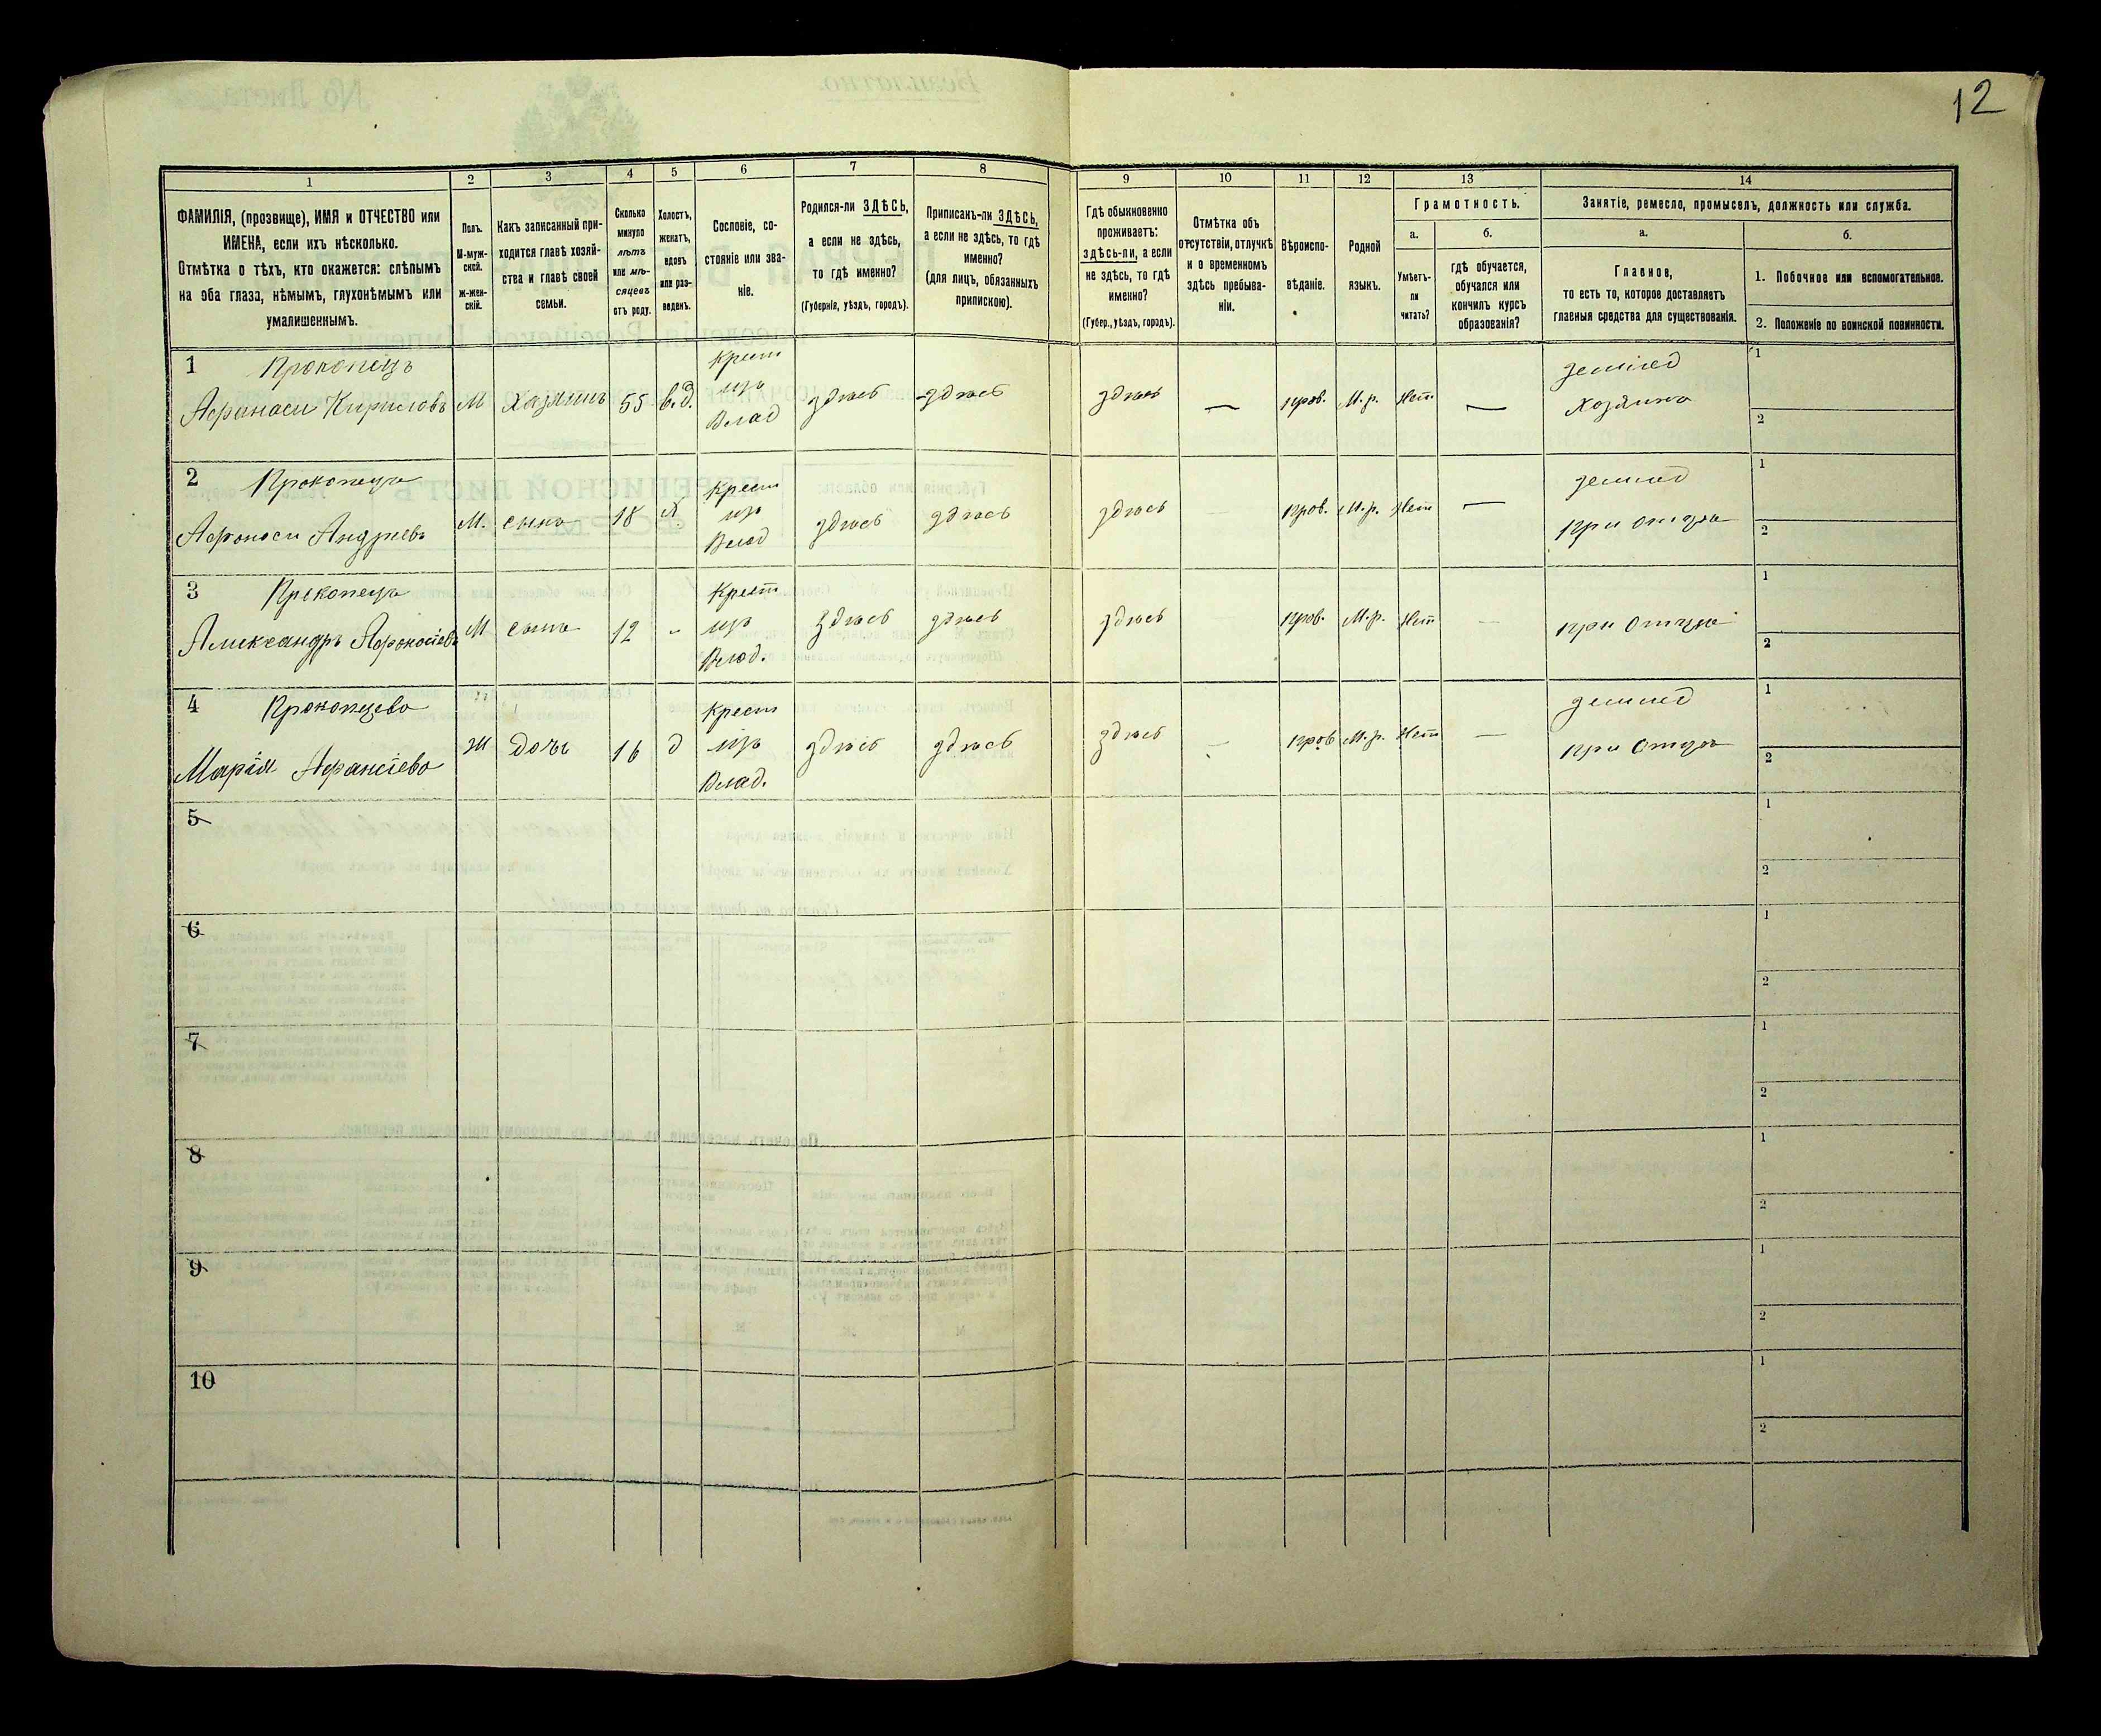 12
1 2 3 4 5 6 7 8 9 10 11 12 13 14
ФАМИЛІЯ, (прозвище), ИМЯ и ОТЧЕСТВО или
ИМЕНА, если ихъ нѣсколько.
Отмѣтка о тѣхъ, кто окажется: слѣпымъ
на оба глаза, нѣмымъ, глухонѣмымъ или
умалишеннымъ.
Полъ.
М-муж-
ской.
Ж-жен-
скій.
Какъ записанный при-
ходится главѣ хозяй-
ства и главѣ своей
семьи.
Сколько
минуло
лѣтъ
или мѣ-
сяцевъ
отъ роду.
Холостъ,
женатъ,
вдовъ
или раз-
веденъ.
Сословіе, со-
стояніе или зва-
ніе.
Родился-ли ЗДѢСЬ,
а если не здѣсь,
то гдѣ именно?
(Губернія, уѣздъ, городъ).
Приписанъ-ли ЗДѢСЬ,
а если не здѣсь, то гдѣ
именно?
(для лицъ, обязанныхъ
припискою).
Гдѣ обыкновенно
проживаетъ:
здѣсь-ли, а если
не здѣсь, то гдѣ
именно?
(Губер., уѣздъ, городъ).
Отмѣтка объ
отсутствіи, отлучкѣ
и о временномъ
здѣсь пребыва-
ніи.
Вѣроиспо-
вѣданіе.
Родной
языкъ.
Грамотность.
а.
Умѣетъ-
ли
читать?
б.
гдѣ обучается,
обучался или
кончилъ курсъ
образованія?
Занятіе, ремесло, промыселъ, должность или служба.
а.
Главное,
то есть то, которое доставляетъ
главныя средства для существованія.
б.
1. Побочное или вспомогательное.
2. Положеніе по воинской повинности.
1 Прокопецъ
Афанаси Кириловъ М Хазяинъ 55 в.д. Крест изъ Влад здѣсь здѣсь здѣсь — прав. М.р. Нет — землед Хозяинъ 1 2
2 Прокопецъ
Афонаси Андреевъ М. сынъ 18 х. Крест изъ Влад здѣсь здѣсь здѣсь — прав. М.р. Нет — землед при отцѣ 1 2
3 Прокопецъ
Александръ Афонасіевъ М сынъ 12 - Крест изъ Влад. здѣсь здѣсь здѣсь прав. М.р. Нет — при отцѣ 1 2
4 Прокопцева
Марія Афанасіева Ж дочь 16 д Крест изъ Влад. здѣсь здѣсь здѣсь — прав М.р. Нет — землед при отцѣ 1 2
5 1 2
6 1 2
7 1 2
8 1 2
9 1 2
10 1 2